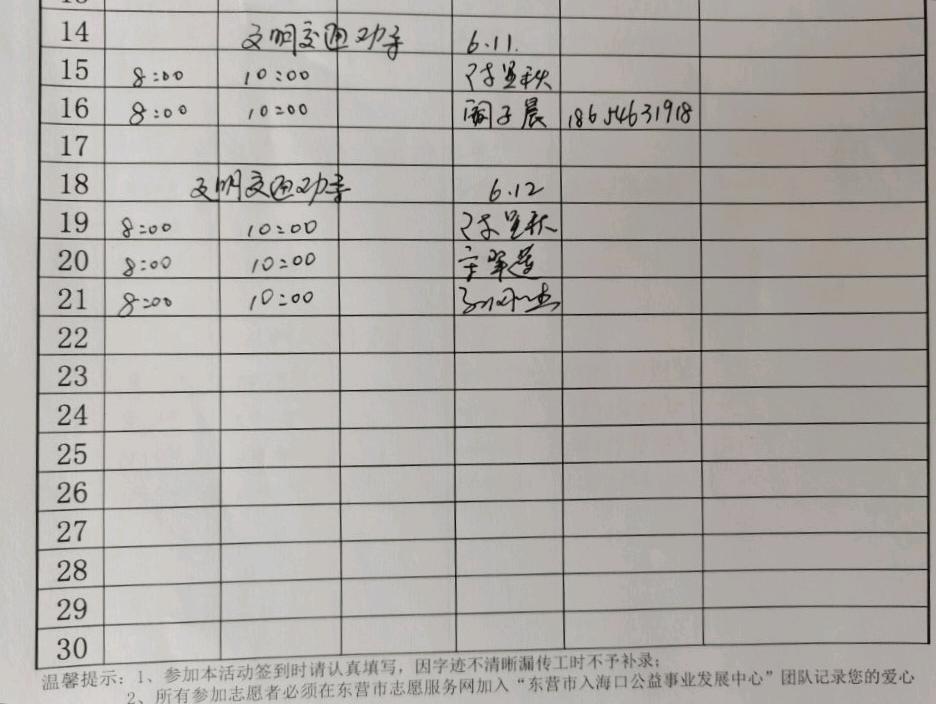 14 文明交通劝导 6.11.
15 8:00 10:00 陈星秋
16 8:00 10:00 阚子晨 18654631918
17
18 文明交通劝导 6.12
19 8:00 10:00 陈星秋
20 8:00 10:00
21 8:00 10:00
22
23
24
25
26
27
28
29
30
温馨提示：1、参加本活动签到时请认真填写，因字迹不清晰漏传工时不予补录；
2、所有参加志愿者必须在东营市志愿服务网加入“东营市入海口公益事业发展中心”团队记录您的爱心